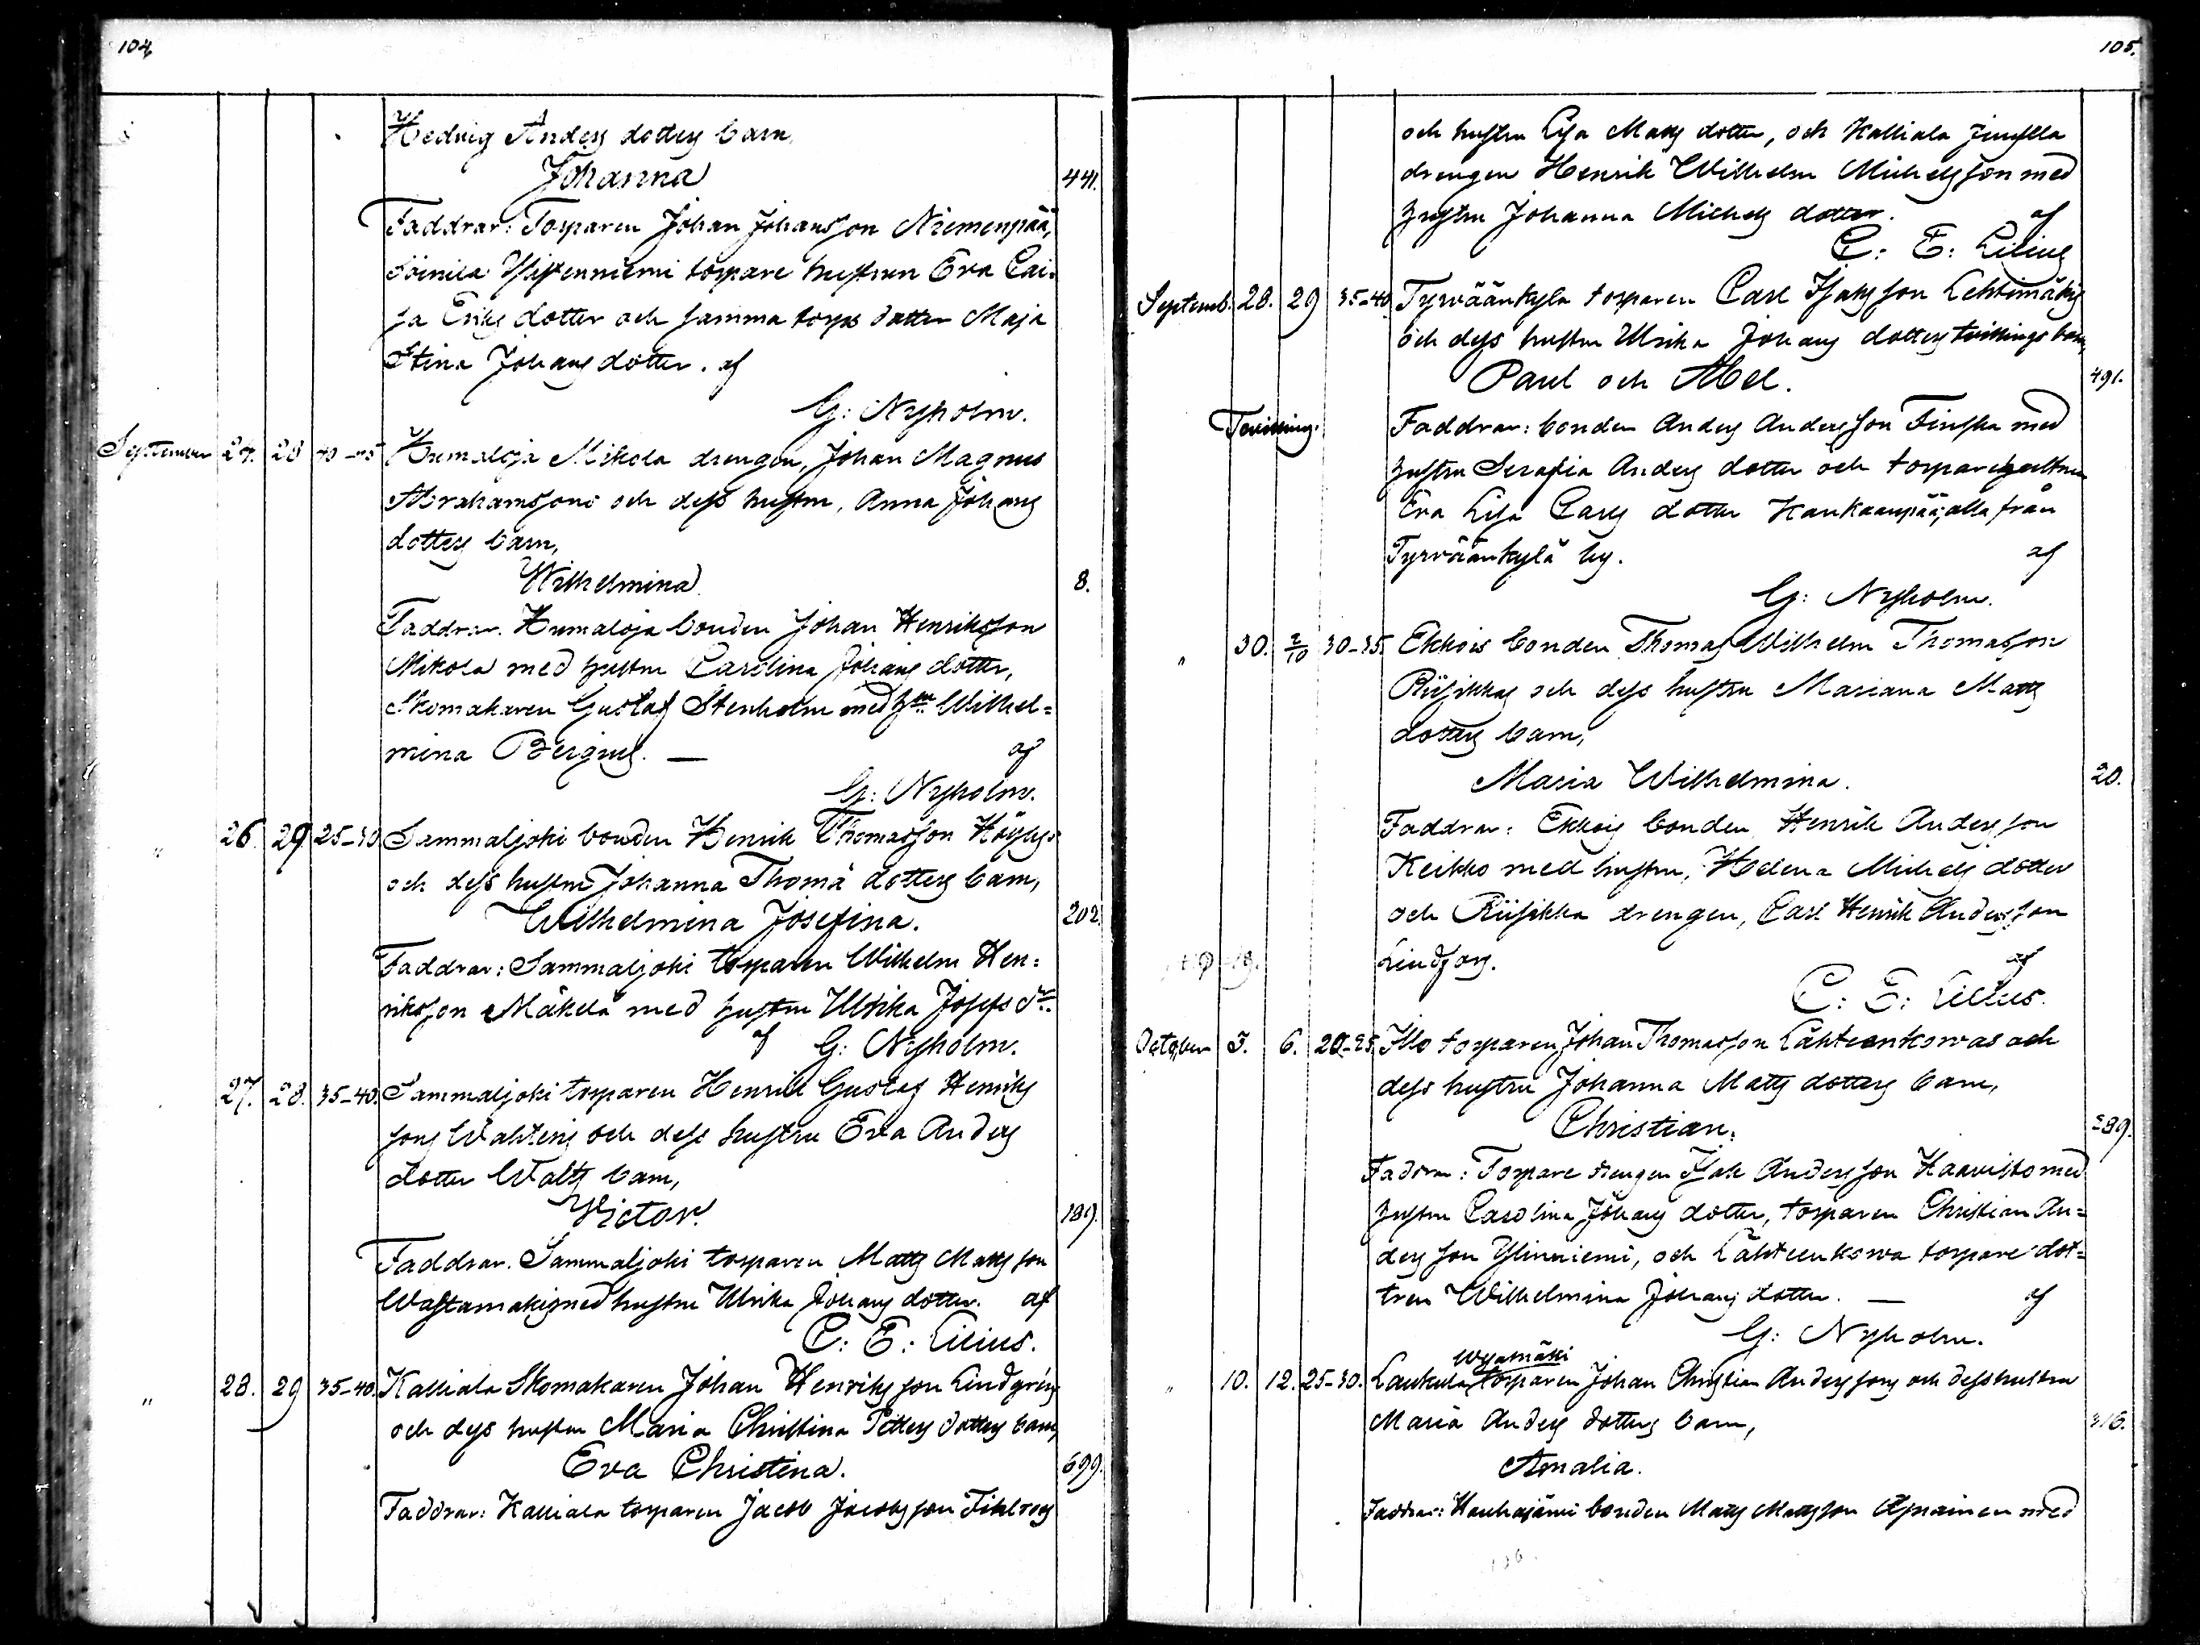 104
Hedvig Anders dotters barn,
Johanna 441.
Faddrar: Torparen Johan Johansson Niemenpää,
torpare hustrun Eva Cai-
sa Eriks dotter och samma torps dotter Maja
Stina Johans dotter. af
G: Nyholm.
September 27. 28 40-45 Humaloja Mikola drengen, Johan Magnus
Abrahamssons och dess hustru, Anna Johans
dotters barn,
Wilhelmina 8.
Faddrar. Humaloja bonden Johan Henriksson
Mikola med hustru Carolina Johans dotter,
Skomakaren Gustaf Stenholm med hru Wilhel=
mina Bergius. — af
G: Nyholm.
" 26. 29 25-30 Sammaljoki bonden Henrik Thomasson
och dess hustru Johanna Thomä dotters barn,
Wilhelmina Josefina. 202
Faddrar: Sammaljoki torparen Wilhelm Hen:
riksson Mäkelä med hustru Ulrika Josefs dr.
af G: Nyholm.
27. 28. 35-40. Sammaljoki torparen Henrik Gustaf Henriks
sons och dess hustru Eva Anders
dotter barn,
Victor. 189.
Faddrar. Sammaljoki torparen Matts Matts son
med hustru Ulrika Johans dotter. af
C: E: Lilius.
" 28. 29 35-40. Kalliala Skomakaren Johan Henriks son Lindgrens
och dess hustru Maria Christina Petters dotters barn,
Eva Christina. 699.
Faddrar: Kalliala torparen Jacob Jacobs son
105.
och hustru Lisa Matts dotter, och Kalliala
drengen Henrik Wilhelm Michelsson med
hustru Johanna Michels dotter. af
C: E: Lilius
Septemb. 28. 29 35-40 Tyrväänkylä torparen Carl Isaksson Lehtimäkis
och dess hustru Ulrika Johans dotters tvillings barn,
Paul och Abel. 491.
Faddrar: bonden Anders Andersson Finska med
hustru Serafia Anders dotter och torpare hustrun
Eva Lisa Carls dotter Kankaanpää, alla från
Tyrväänkylä by. af
G: Nyholm.
" 30. 2/10 30-35. Ekkois bonden Thomas Wilhelm Thomasson
Riisikkas och dess hustru Mariana Matts
dotters barn,
Maria Wilhelmina. 20.
Faddrar: Ekkois bonden Henrik Andersson
Keikko med hustru, Helena Michels dotter
och Riisikka drengen, Carl Henrik Andersson
Lindfors. af
C: E: Lilius.
October 5. 6. 20-25 Illo torparen Johan Thomasson Lähteenkorvas och
dess hustru Johanna Matts dotters barn,
Christian. 289.
Faddrar: Torpare drengen Isak Andersson Haavisto med
hustru Carolina Johans dotter, torparen Christian An=
ders son Yliniemi, och Lähteenkorva torpare dot=
tren Wilhelmina Johans dotter. — af
G: Nyholm.
" 10. 12. 25-30. Laukula torparen Johan Christian Anders sons och dess hustru
Maria Anders dotters barn, 316.
Amalia.
Faddrar: bonden Matts Mattsson med